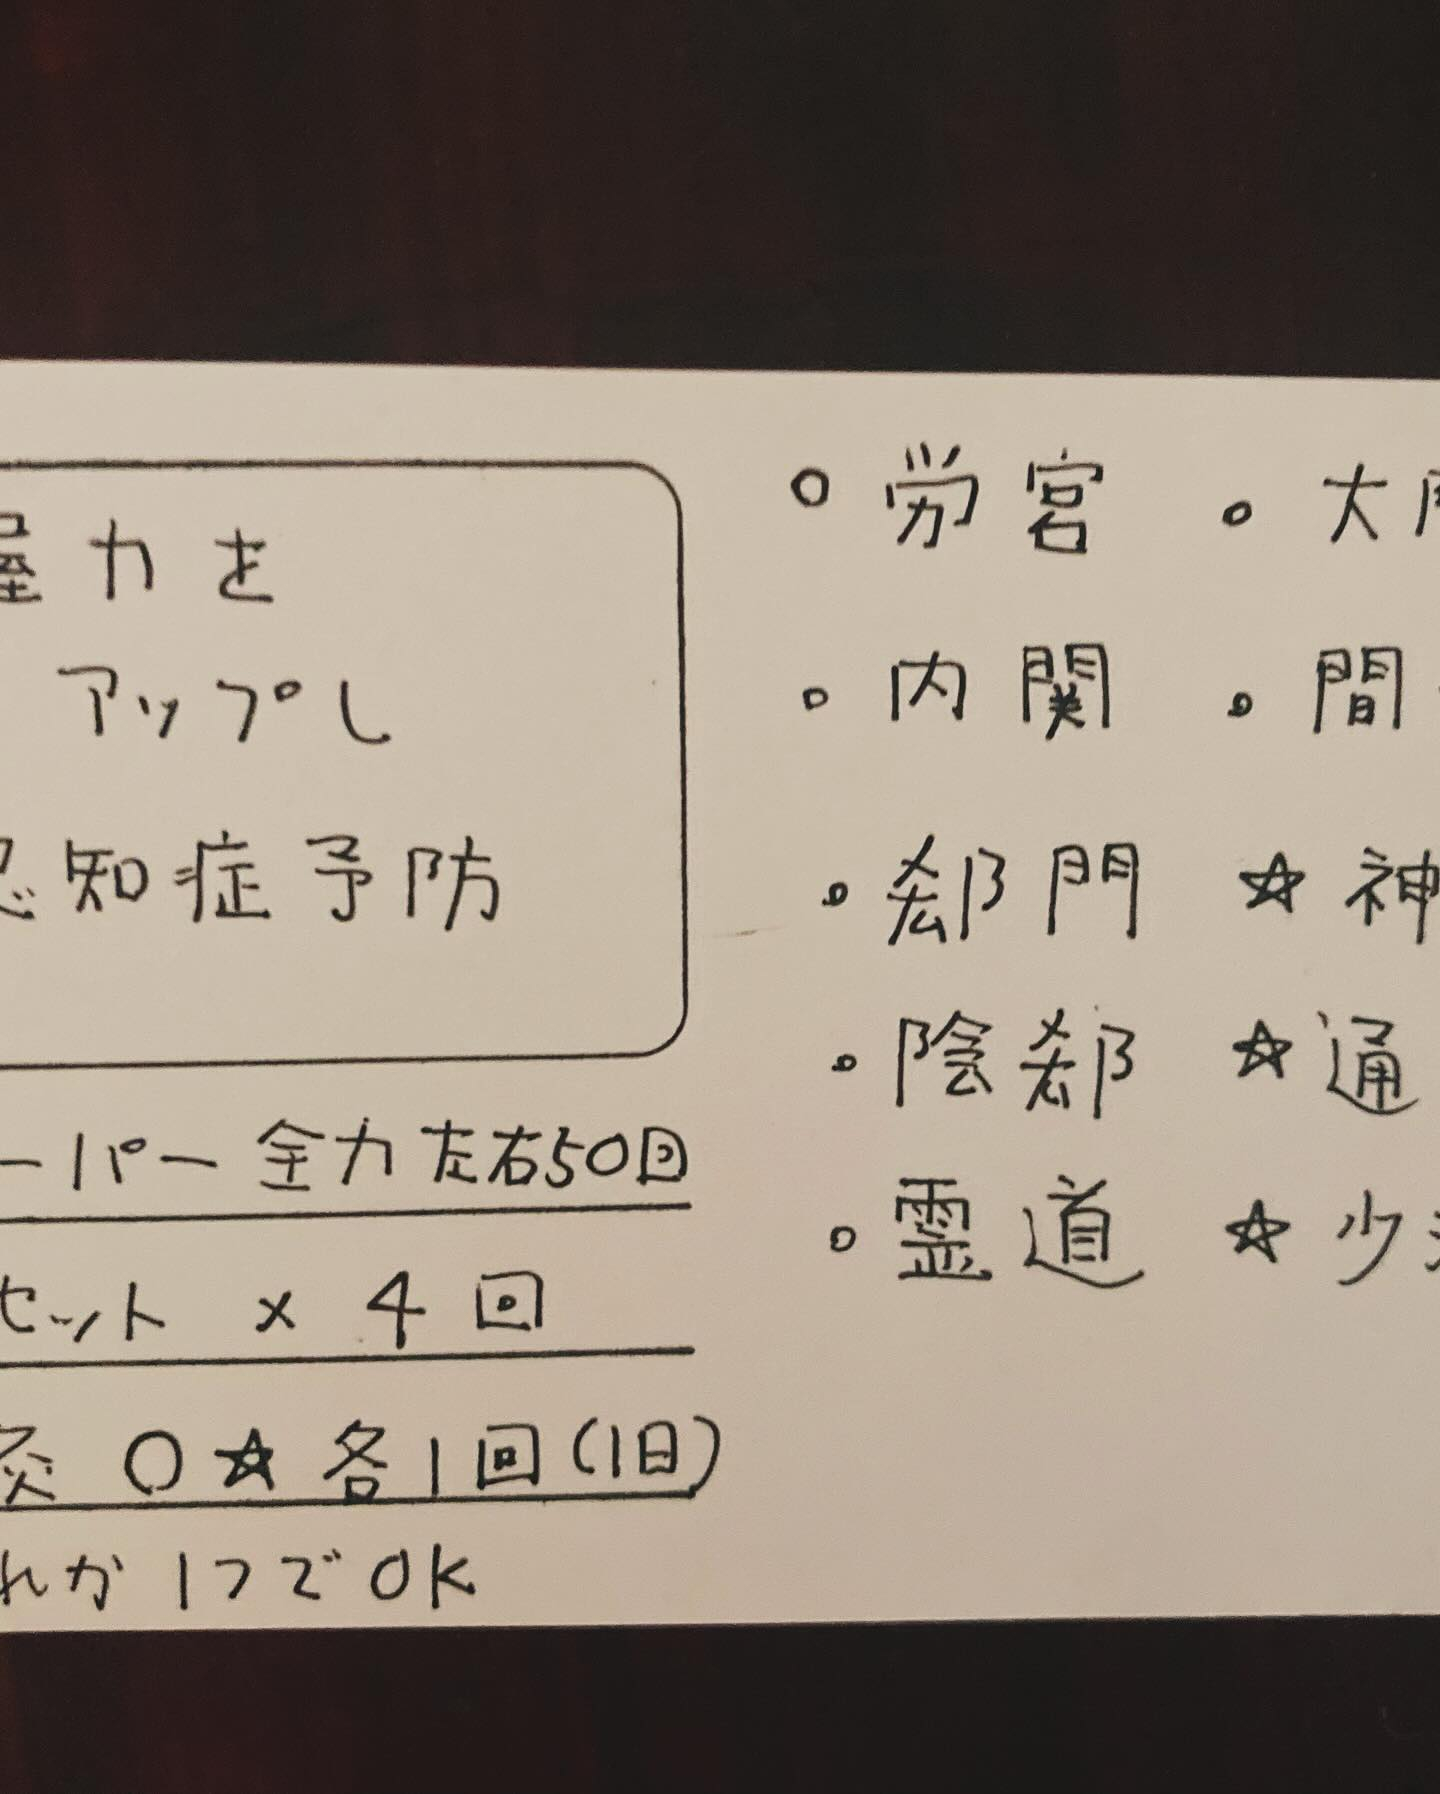 力を
アップし
知症予防
ーパー 全力 左右50回
セット × 4回
灸 ○☆ 各1回(1日)
れか1つでOK
○ 労宮 ○ 大
○ 内関 ○ 間
○ 郄門 ☆ 神
○ 陰郄 ☆ 通
○ 霊道 ☆ 少